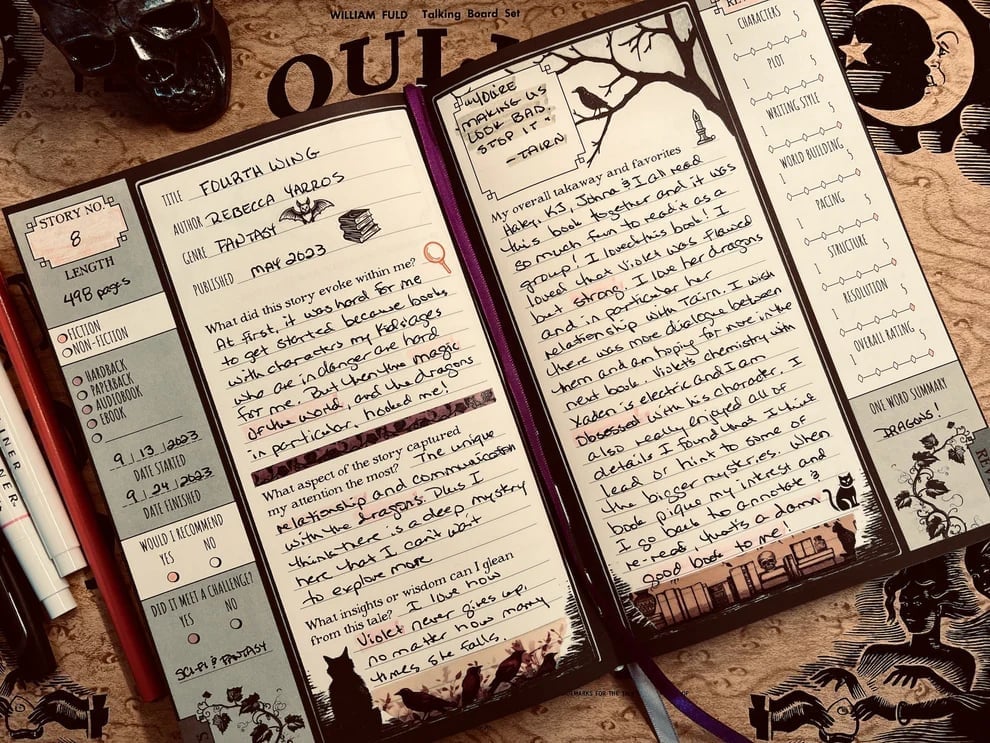 WILLIAM FULD Talking Board Set
STORY NO.
8
LENGTH
498 pages
FICTION
NON-FICTION
HARDBACK
PAPERBACK
AUDIOBOOK
EBOOK
9/13/2023
DATE STARTED
9/24/2023
DATE FINISHED
WOULD I RECOMMEND
YES NO
DID IT MEET A CHALLENGE?
YES NO
SCI-FI & FANTASY
TITLE FOURTH WING
AUTHOR REBECCA YARROS
GENRE FANTASY
PUBLISHED MAY 2023
What did this story evoke within me?
At first, it was hard for me
to get started because books
with characters my kids ages
who are in danger are hard
for me. But then the magic
of the world, and the dragons
in particular, hooked me!
What aspect of the story captured
my attention the most? The unique
relationship and communication
with the dragons. Plus I
think there is a deep mystery
here that I can't wait
to explore more
What insights or wisdom can I glean
from this tale? I love how
Violet never gives up,
no matter how many
times she falls.
"YOU'RE
MAKING US
LOOK BAD.
STOP IT."
-TAIRN
My overall takaway and favorites
Haley, KJ, Johna & I all read
this book together and it was
so much fun to read it as a
group! I loved this book! I
loved that Violet was flawed
but strong. I love her dragons
and in particular her
relationship with Tairn. I wish
there was more dialogue between
them and am hoping for more in the
next book. Violet's chemistry with
Xaden is electric and I am
Obsessed with his character. I
also really enjoyed all of
details I found that I think
lead or hint to some of
the bigger mysteries. When
book pique my intrest and
I go back to annotate &
re-read, that's a damn
good book to me!
CHARACTERS
1 5
PLOT
1 5
WRITING STYLE
1 5
WORLD BUILDING
1 5
PACING
1 5
STRUCTURE
1 5
RESOLUTION
1 5
OVERALL RATING
1 5
ONE WORD SUMMARY
DRAGONS!